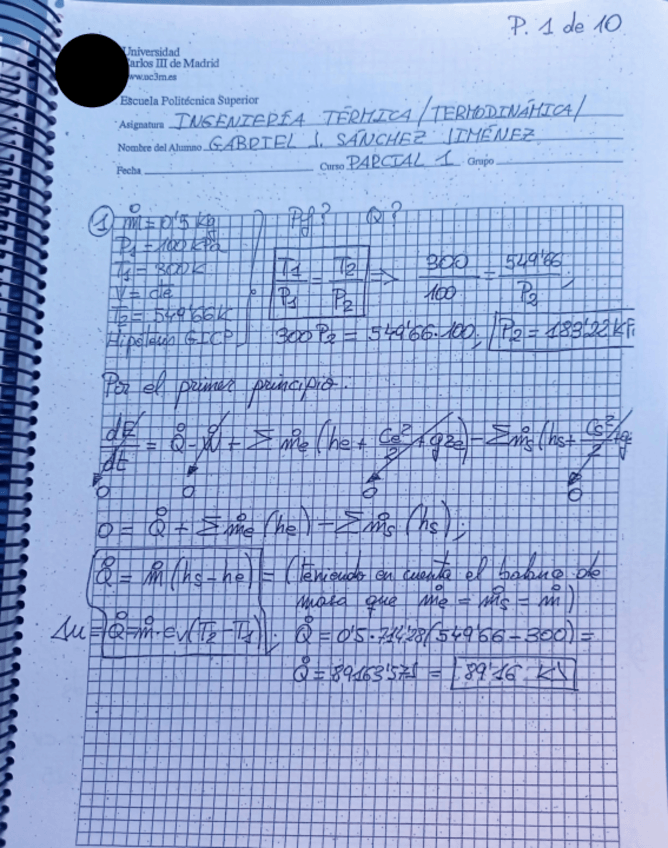 P. 1 de 10
Universidad
Carlos III de Madrid
www.uc3m.es
Escuela Politécnica Superior
Asignatura INGENIERÍA TÉRMICA/TERMODINÁMICA/
Nombre del Alumno GABRIEL J. SÁNCHEZ JIMÉNEZ
Fecha Curso PARCIAL 1 Grupo
① ṁ = 0'5 kg Pf? Q?
P1 = 100 kPa
T1 = 300 K T1/P1 = T2/P2 => 300/100 = 549'66/P2;
V = cte
T2 = 549'66 K
Hipótesis GICP 300 P2 = 549'66·100; P2 = 183'22 KPa
Por el primer principio.
dE/dt = Q̇ - Ẇ + Σ ṁe (he + Ce²/2 + gze) - Σ ṁs (hs + Cs²/2 + g
0 0 0 0
0 = Q̇ + Σ ṁe (he) - Σ ṁs (hs);
Q̇ = ṁ (hs - he) = (Teniendo en cuenta el balance de
masa que ṁe = ṁs = ṁ)
Δu = Q̇ = ṁ·cv(T2 - T1); Q̇ = 0'5·714'28(549'66 - 300) =
Q̇ = 89163'571 = 89'16 KJ